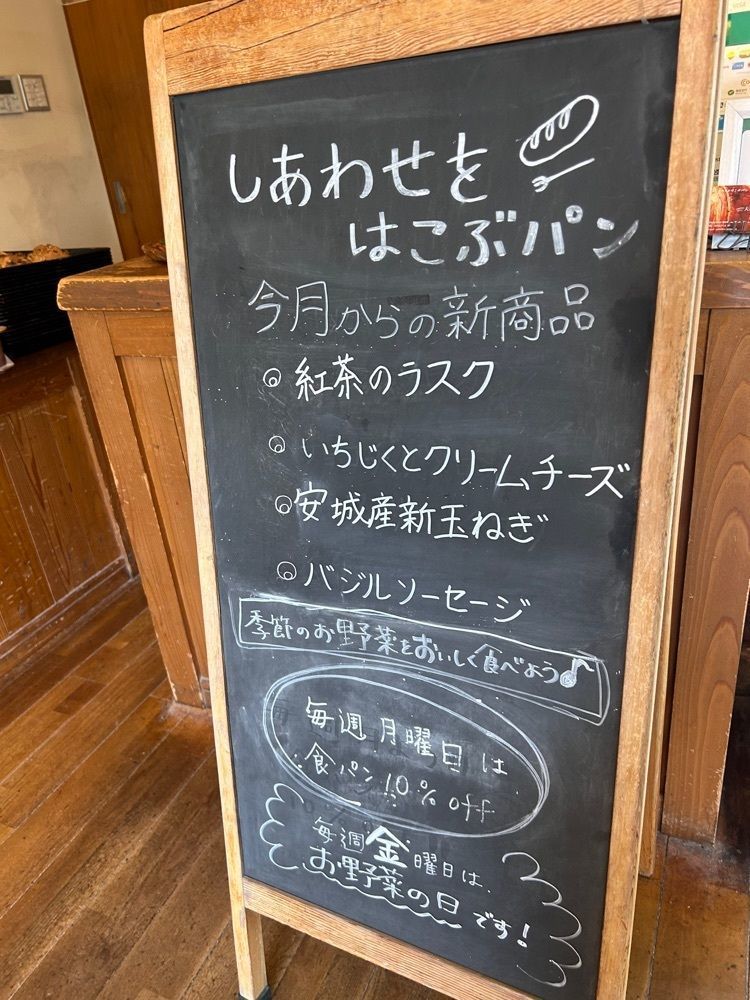 しあわせを
はこぶパン
今月からの新商品
◎ 紅茶のラスク
◎ いちじくとクリームチーズ
◎ 安城産新玉ねぎ
◎ バジルソーセージ
季節のお野菜をおいしく食べよう♪
毎週月曜日は
食パン10% off
毎週金曜日は、
お野菜の日です!